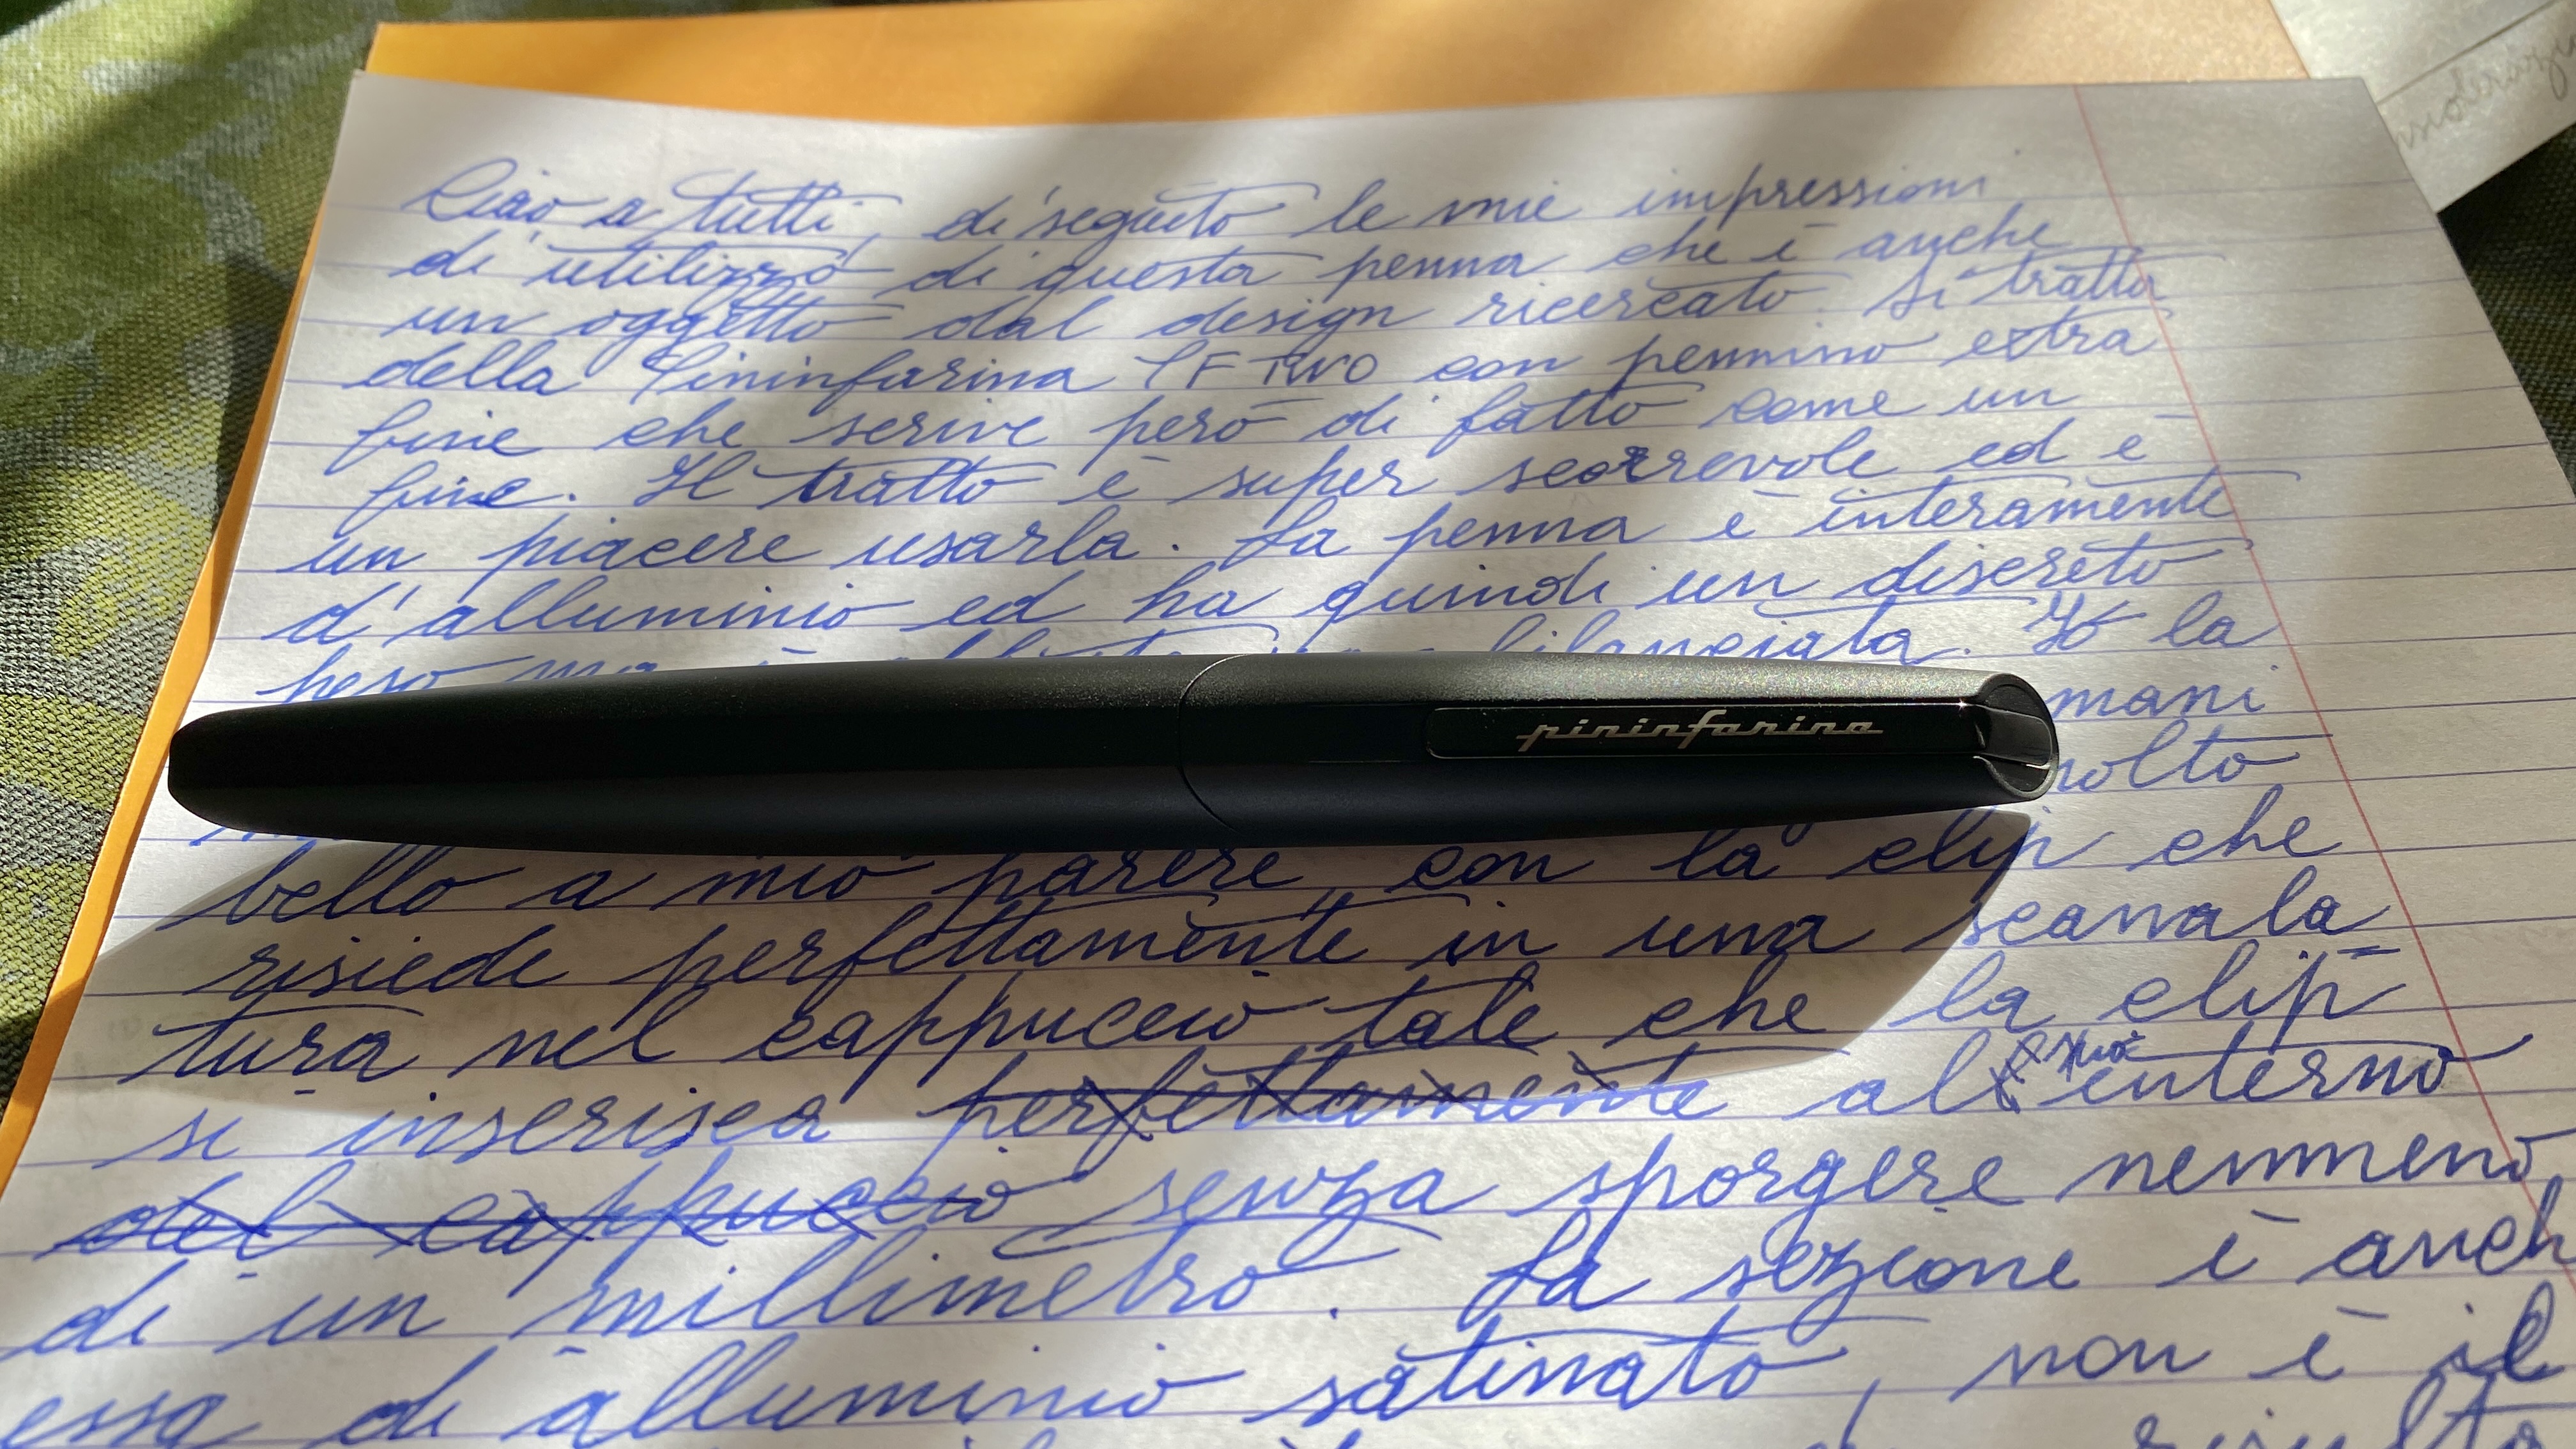 Ciao a tutti, di seguito le mie impressioni
di utilizzo di questa penna che è anche
un oggetto dal design ricercato. Si tratta
della Pininfarina PF TWO con pennino extra
fine che scrive però di fatto come un
fine. Il tratto è super scorrevole ed è
un piacere usarla. La penna è interamente
d'alluminio ed ha quindi un discreto
peso ma è bilanciata. Io la
mani
pininfarina
molto
bello a mio parere, con la clip che
risiede perfettamente in una scanala
tura nel cappuccio tale che la clip
si inserisca perfettamente all'interno
del cappuccio senza sporgere nemmeno
di un millimetro. La sezione è anch
essa di alluminio satinato, non è il